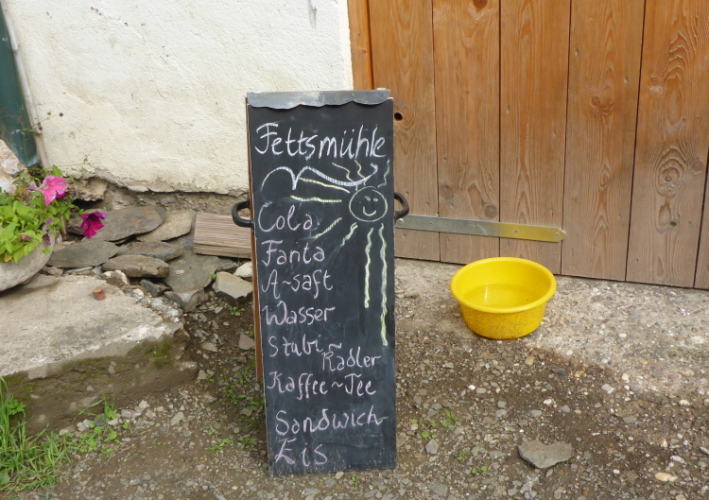 Fettsmühle
Cola
Fanta
A~saft
Wasser
Stubi~
Radler
Kaffee~Tee
Sandwich
Eis